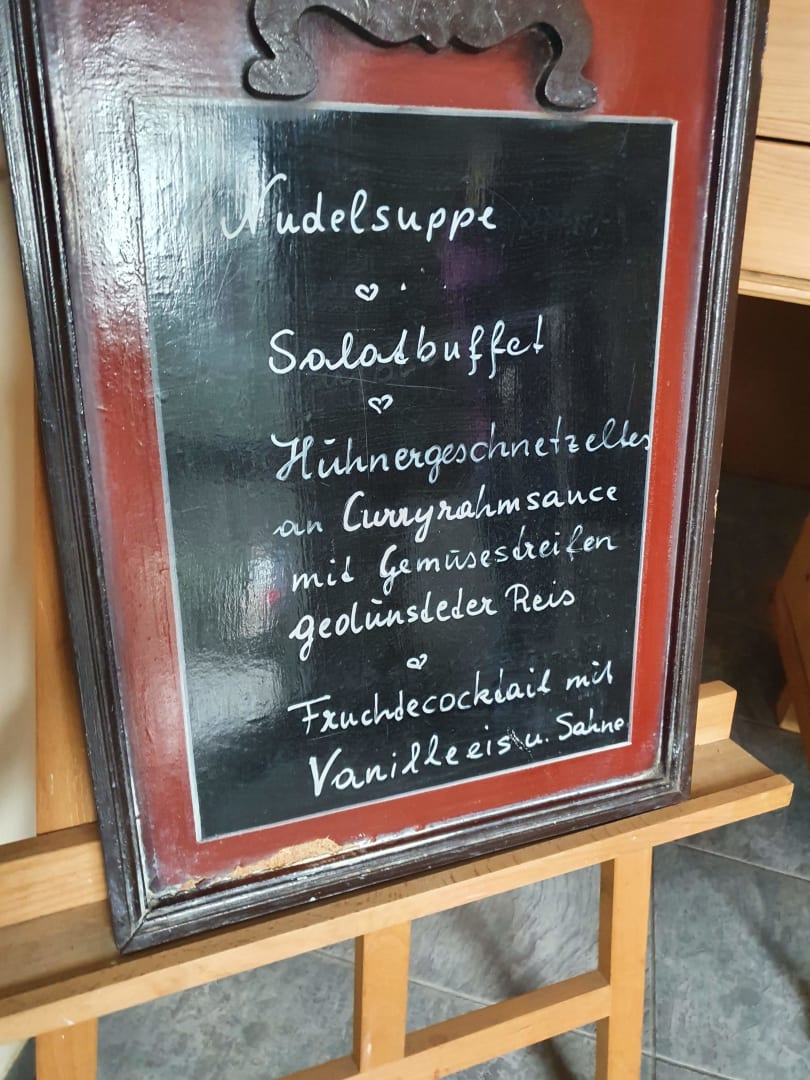 Nudelsuppe
Salatbuffet
Hühnergeschnetzeltes
an Curryrahmsauce
mit Gemüsestreifen
gedünsteter Reis
Fruchtecocktail mit
Vanilleeis u. Sahne